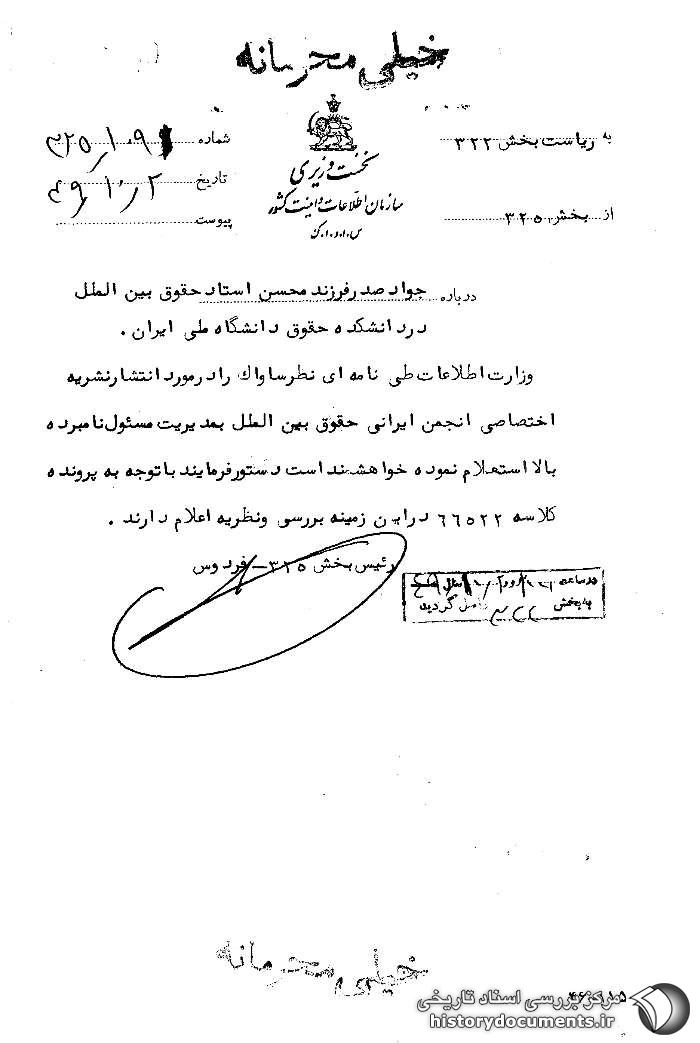 خیلی محرمانه
به ریاست بخش ۳۲۲
از بخش ۳۲۵
نخست وزیری
سازمان اطلاعات و امنیت کشور
س.ا.و.ا.ک
شماره ۳۲۵/۱۰۹
تاریخ ۴۹/۱۰/۲
پیوست
درباره جواد صدر فرزند محسن استاد حقوق بین الملل
در دانشکده حقوق دانشگاه ملی ایران .
وزارت اطلاعات طی نامه ای نظر ساواك را در مورد انتشار نشریه
اختصاصی انجمن ایرانی حقوق بین الملل بمدیریت مسئول نامبرده
بالا استعلام نموده خواهشمند است دستور فرمایند با توجه به پرونده
کلاسه ۶۶۵۲۲ در این زمینه بررسی ونظریه اعلام دارند .
رئیس بخش ۳۲۵ - فردوس
در ساعت
به بخش ۳۲۲ واصل گردید
خیلی محرمانه
۱۵
مرکز بررسی اسناد تاریخی
historydocuments.ir